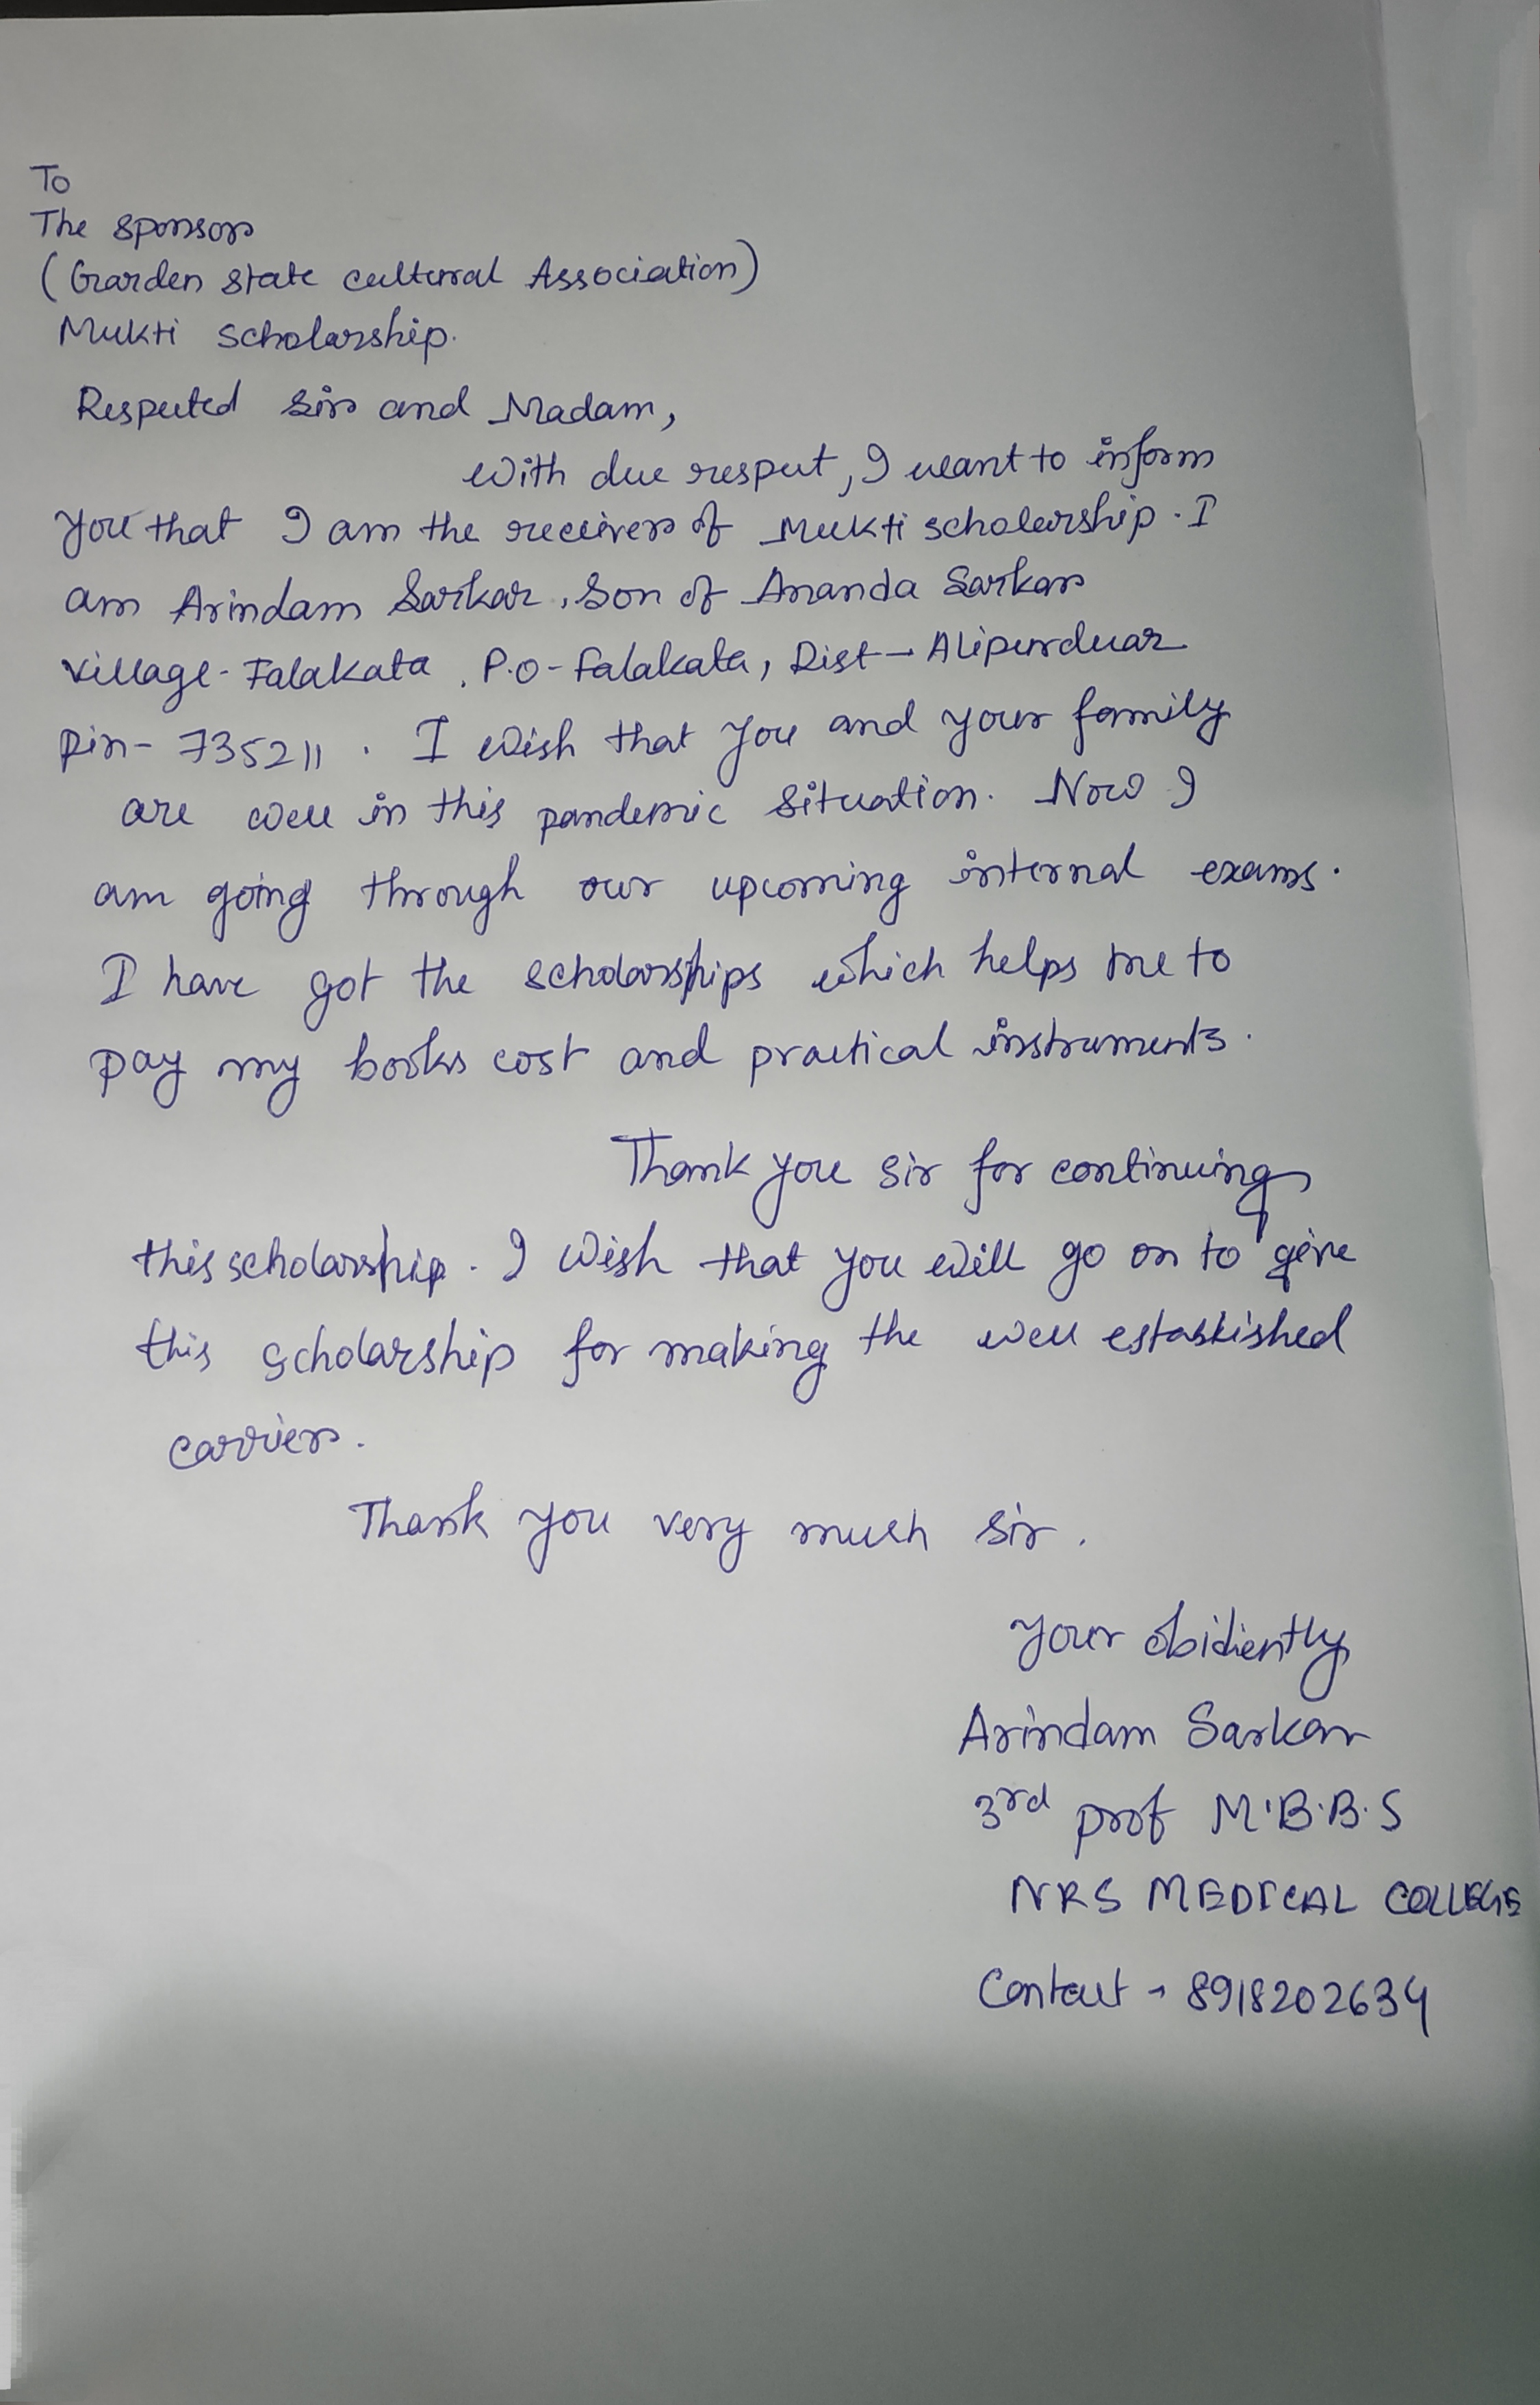 To
The sponsor
(Garden state cultural Association)
Mukti scholarship.
Respected sir and Madam,
With due respect, I want to inform
you that I am the receiver of Mukti scholarship. I
am Arindam Sarkar, Son of Ananda Sarkar
village- Falakata, P.O- Falakata, Dist- Alipurduar
pin- 735211. I wish that you and your family
are well in this pandemic situation. Now I
am going through our upcoming internal exams.
I have got the scholarships which helps me to
pay my books cost and practical instruments.
Thank you sir for continuing
this scholarship. I wish that you will go on to give
this scholarship for making the well established
carrier.
Thank you very much sir.
your obidiently
Arindam Sarkar
3rd prof M.B.B.S
NRS MEDICAL COLLEGE
Contact - 8918202634